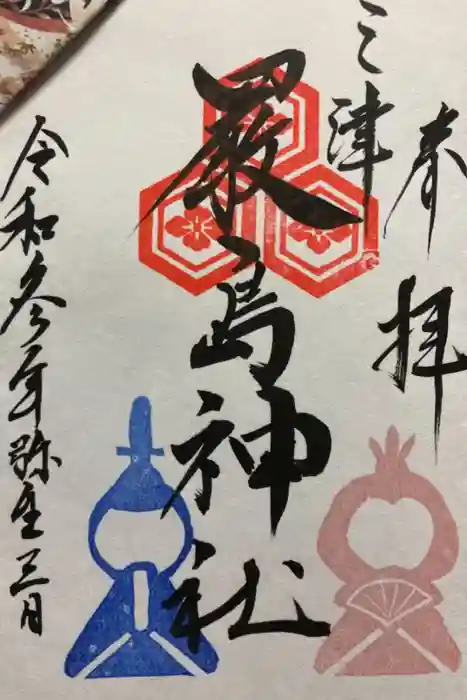 奉拝
三津
厳島神社
令和参年弥生三日